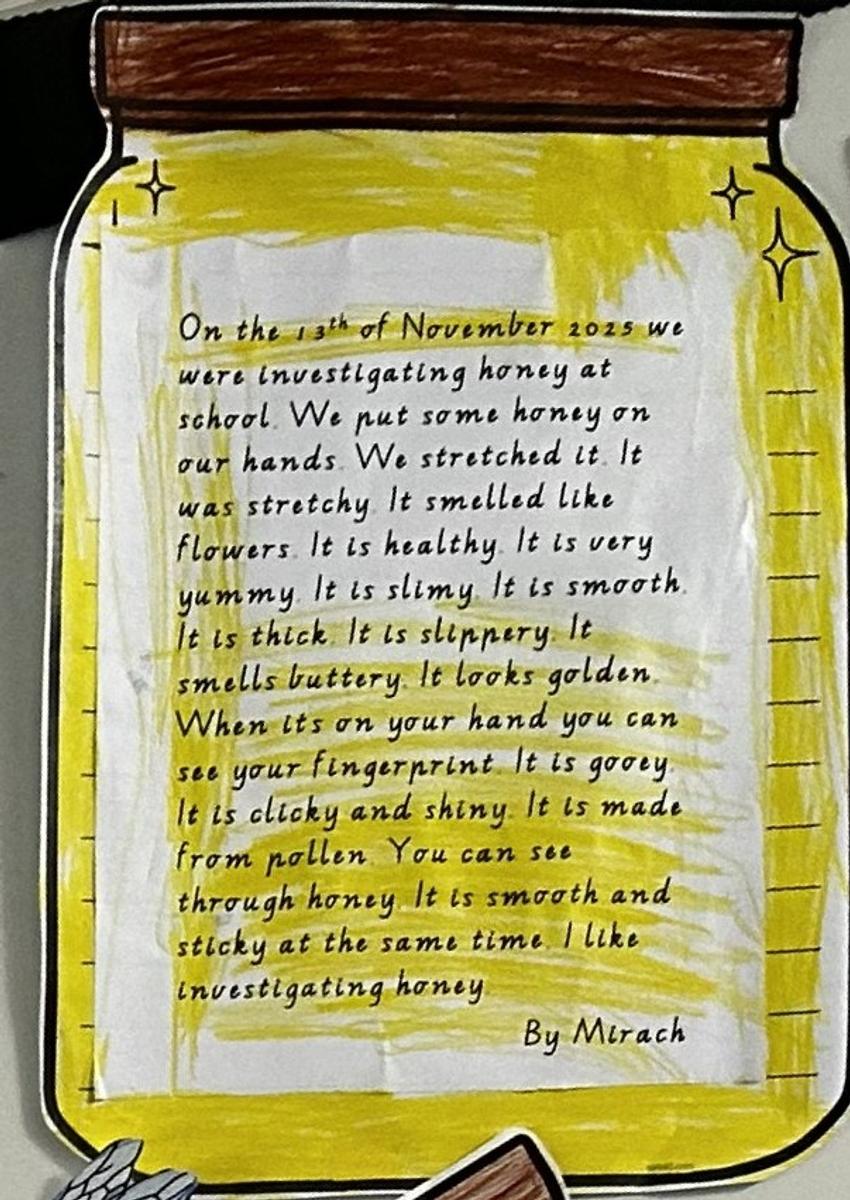 On the 13th of November 2025 we
were investigating honey at
school. We put some honey on
our hands. We stretched it. It
was stretchy. It smelled like
flowers. It is healthy. It is very
yummy. It is slimy. It is smooth.
It is thick. It is slippery. It
smells buttery. It looks golden.
When its on your hand you can
see your fingerprint. It is gooey.
It is clicky and shiny. It is made
from pollen. You can see
through honey. It is smooth and
sticky at the same time. I like
investigating honey.
By Mirach